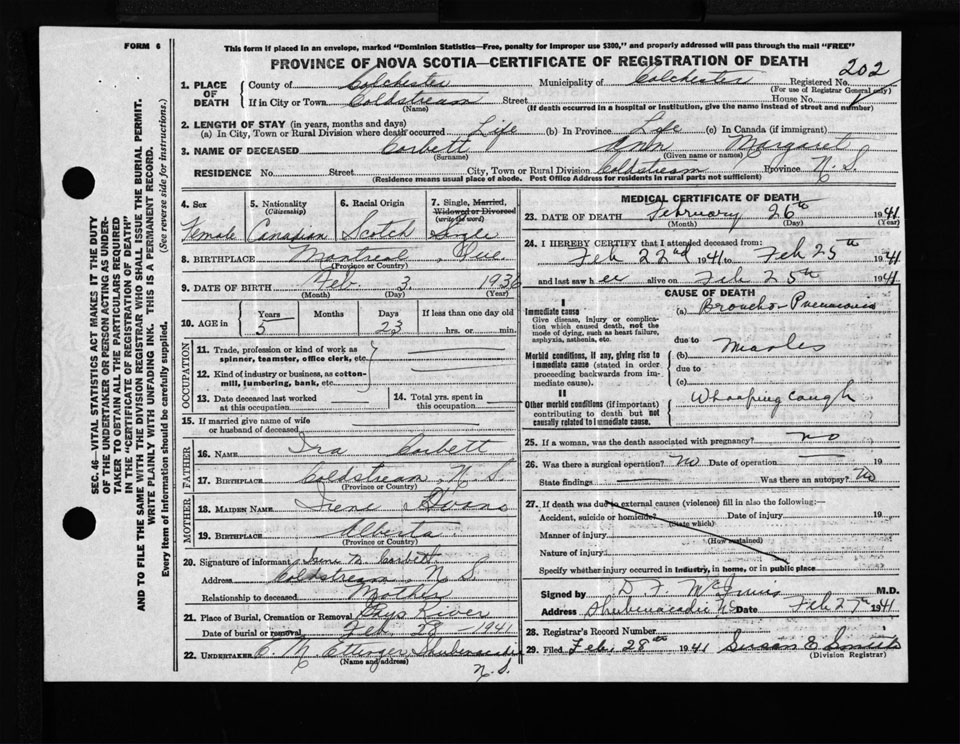 FORM 6
This form if placed in an envelope, marked "Dominion Statistics—Free, penalty for improper use $300," and properly addressed will pass through the mail "FREE"
PROVINCE OF NOVA SCOTIA—CERTIFICATE OF REGISTRATION OF DEATH
202
1. PLACE OF DEATH
County of Colchester Municipality of Colchester Registered No.
(For use of Registrar General only)
If in City or Town Coldstream Street House No.
(Name) (If death occurred in a hospital or institution, give the name instead of street and number)
2. LENGTH OF STAY (in years, months and days)
(a) In City, Town or Rural Division where death occurred Life (b) In Province Life (c) In Canada (if immigrant)
3. NAME OF DECEASED Corbett Ann Margaret
(Surname) (Given name or names)
RESIDENCE No. Street City, Town or Rural Division Coldstream Province N.S.
(Residence means usual place of abode. Post Office Address for residents in rural parts not sufficient)
4. Sex 5. Nationality (Citizenship) 6. Racial Origin 7. Single, Married, Widowed or Divorced (write the word)
Female Canadian Scotch Single
8. BIRTHPLACE Montreal, Que.
(Province or Country)
9. DATE OF BIRTH Feb. 3 1936
(Month) (Day) (Year)
10. AGE in Years Months Days If less than one day old
5 23 hrs. or min.
OCCUPATION
11. Trade, profession or kind of work as spinner, teamster, office clerk, etc.
12. Kind of industry or business, as cotton-mill, lumbering, bank, etc.
13. Date deceased last worked at this occupation
14. Total yrs. spent in this occupation
15. If married give name of wife or husband of deceased
FATHER
16. NAME Ira Corbett
17. BIRTHPLACE Coldstream N.S.
(Province or Country)
MOTHER
18. MAIDEN NAME Irene
19. BIRTHPLACE Alberta
(Province or Country)
20. Signature of informant Corbett
Address Coldstream, N.S.
Relationship to deceased Mother
21. Place of Burial, Cremation or Removal River
Date of burial or removal Feb. 28 1941
22. UNDERTAKER Ettinger, Shubenacadie
(Name and address)
N.S.
MEDICAL CERTIFICATE OF DEATH
23. DATE OF DEATH February 26th 1941
(Month) (Day) (Year)
24. I HEREBY CERTIFY that I attended deceased from:
Feb 22nd 1941 to Feb 25th 1941
and last saw her alive on Feb 25th 1941
CAUSE OF DEATH
I
Immediate cause
Give disease, injury or complication which caused death, not the mode of dying, such as heart failure, asphyxia, asthenia, etc.
(a) Broncho Pneumonia
due to
Morbid conditions, if any, giving rise to immediate cause (stated in order proceeding backwards from immediate cause).
(b) Measles
due to
(c)
II
Other morbid conditions (if important) contributing to death but not causally related to immediate cause.
Whooping Cough
25. If a woman, was the death associated with pregnancy? no
26. Was there a surgical operation? no Date of operation 19
State findings Was there an autopsy? No
27. If death was due to external causes (violence) fill in also the following:—
Accident, suicide or homicide? Date of injury 19
(State which)
Manner of injury
(How sustained)
Nature of injury
Specify whether injury occurred in industry, in home, or in public place
Signed by D. F. M.D.
Address Shubenacadie NS Date Feb 27th 1941
28. Registrar's Record Number
29. Filed Feb. 28th 1941 Susan E Smith
(Division Registrar)
SEC. 46—VITAL STATISTICS ACT MAKES IT THE DUTY
OF THE UNDERTAKER OR PERSON ACTING AS UNDERTAKER TO OBTAIN ALL THE PARTICULARS REQUIRED
IN THE "CERTIFICATE OF REGISTRATION OF DEATH"
AND TO FILE THE SAME WITH THE DIVISION REGISTRAR WHO SHALL ISSUE THE BURIAL PERMIT.
WRITE PLAINLY WITH UNFADING INK. THIS IS A PERMANENT RECORD.
Every item of information should be carefully supplied. (See reverse side for instructions.)